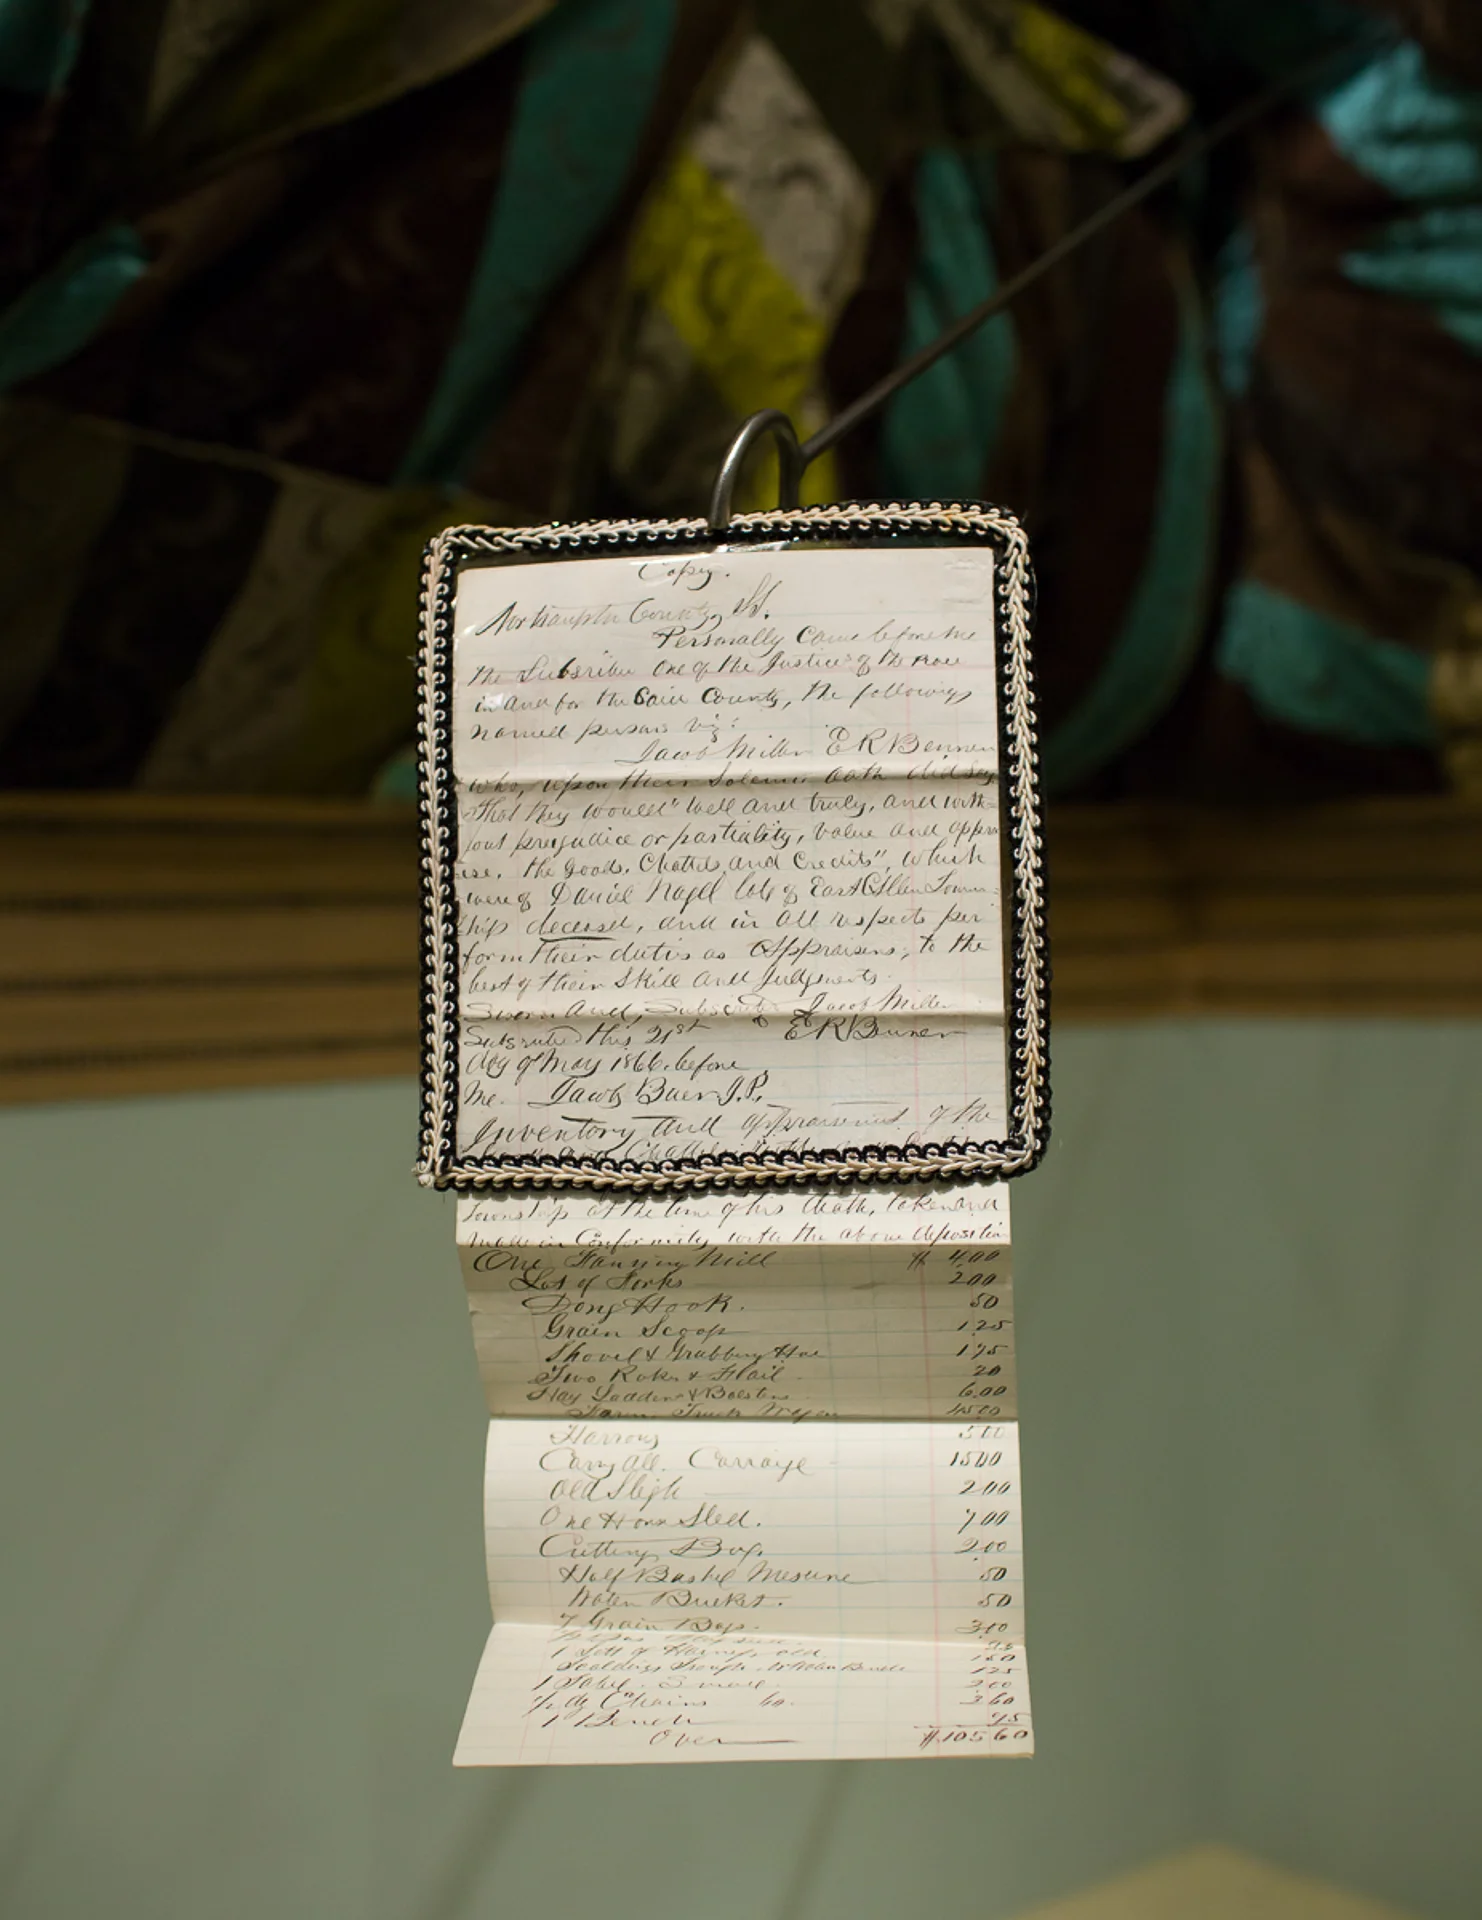 Copy.
Northampton County, SS.
Personally Came before me
the Subscriber One of the Justices of the
in and for the Said County, the following
named persons viz:
Jacob Miller E R Bennen
who, upon their Solemn oath did Say
That they would "well and truly, and with=
out prejudice or partiality, value and appra
ise, the Goods, Chattels and Credits", which
were of Daniel Nagel late of East Allen Town=
ship deceased, and in all respects per
form their duties as Appraisers, to the
best of their Skill and Judgments.
Sworn and Jacob Miller
this 21st E R Bennen
day of May 1866. before
Me. Jacob Baer J.P.
Inventory and appraisement of the
and Chattels
Township at the time of his death, taken and
made in Conformity with the above deposition
One Fanning Mill $ 4.00
Lot of Forks 2.00
Dong Hook. 50
Grain Scoop 1.25
Shovel & Grubbing Hoe 1.75
Two Rakes & Flail. 20
Hay Ladders & Bolsters 6.00
Farm Truck Wagon 45.00
Harrows 5.00
Carry All. Carraige 15.00
Old Sleigh 2.00
One Horse Sled. 7.00
Cutting Box. 2.00
Half Bushel Mesure 50
Water Bucket. 50
7 Grain Bags. 3.10
1 Sett of Harness old. 1.50
Scalding Trough. 1.25
1 Table. Small. 2.00
Chains 3.60
1 Bench 75
Over $105.60